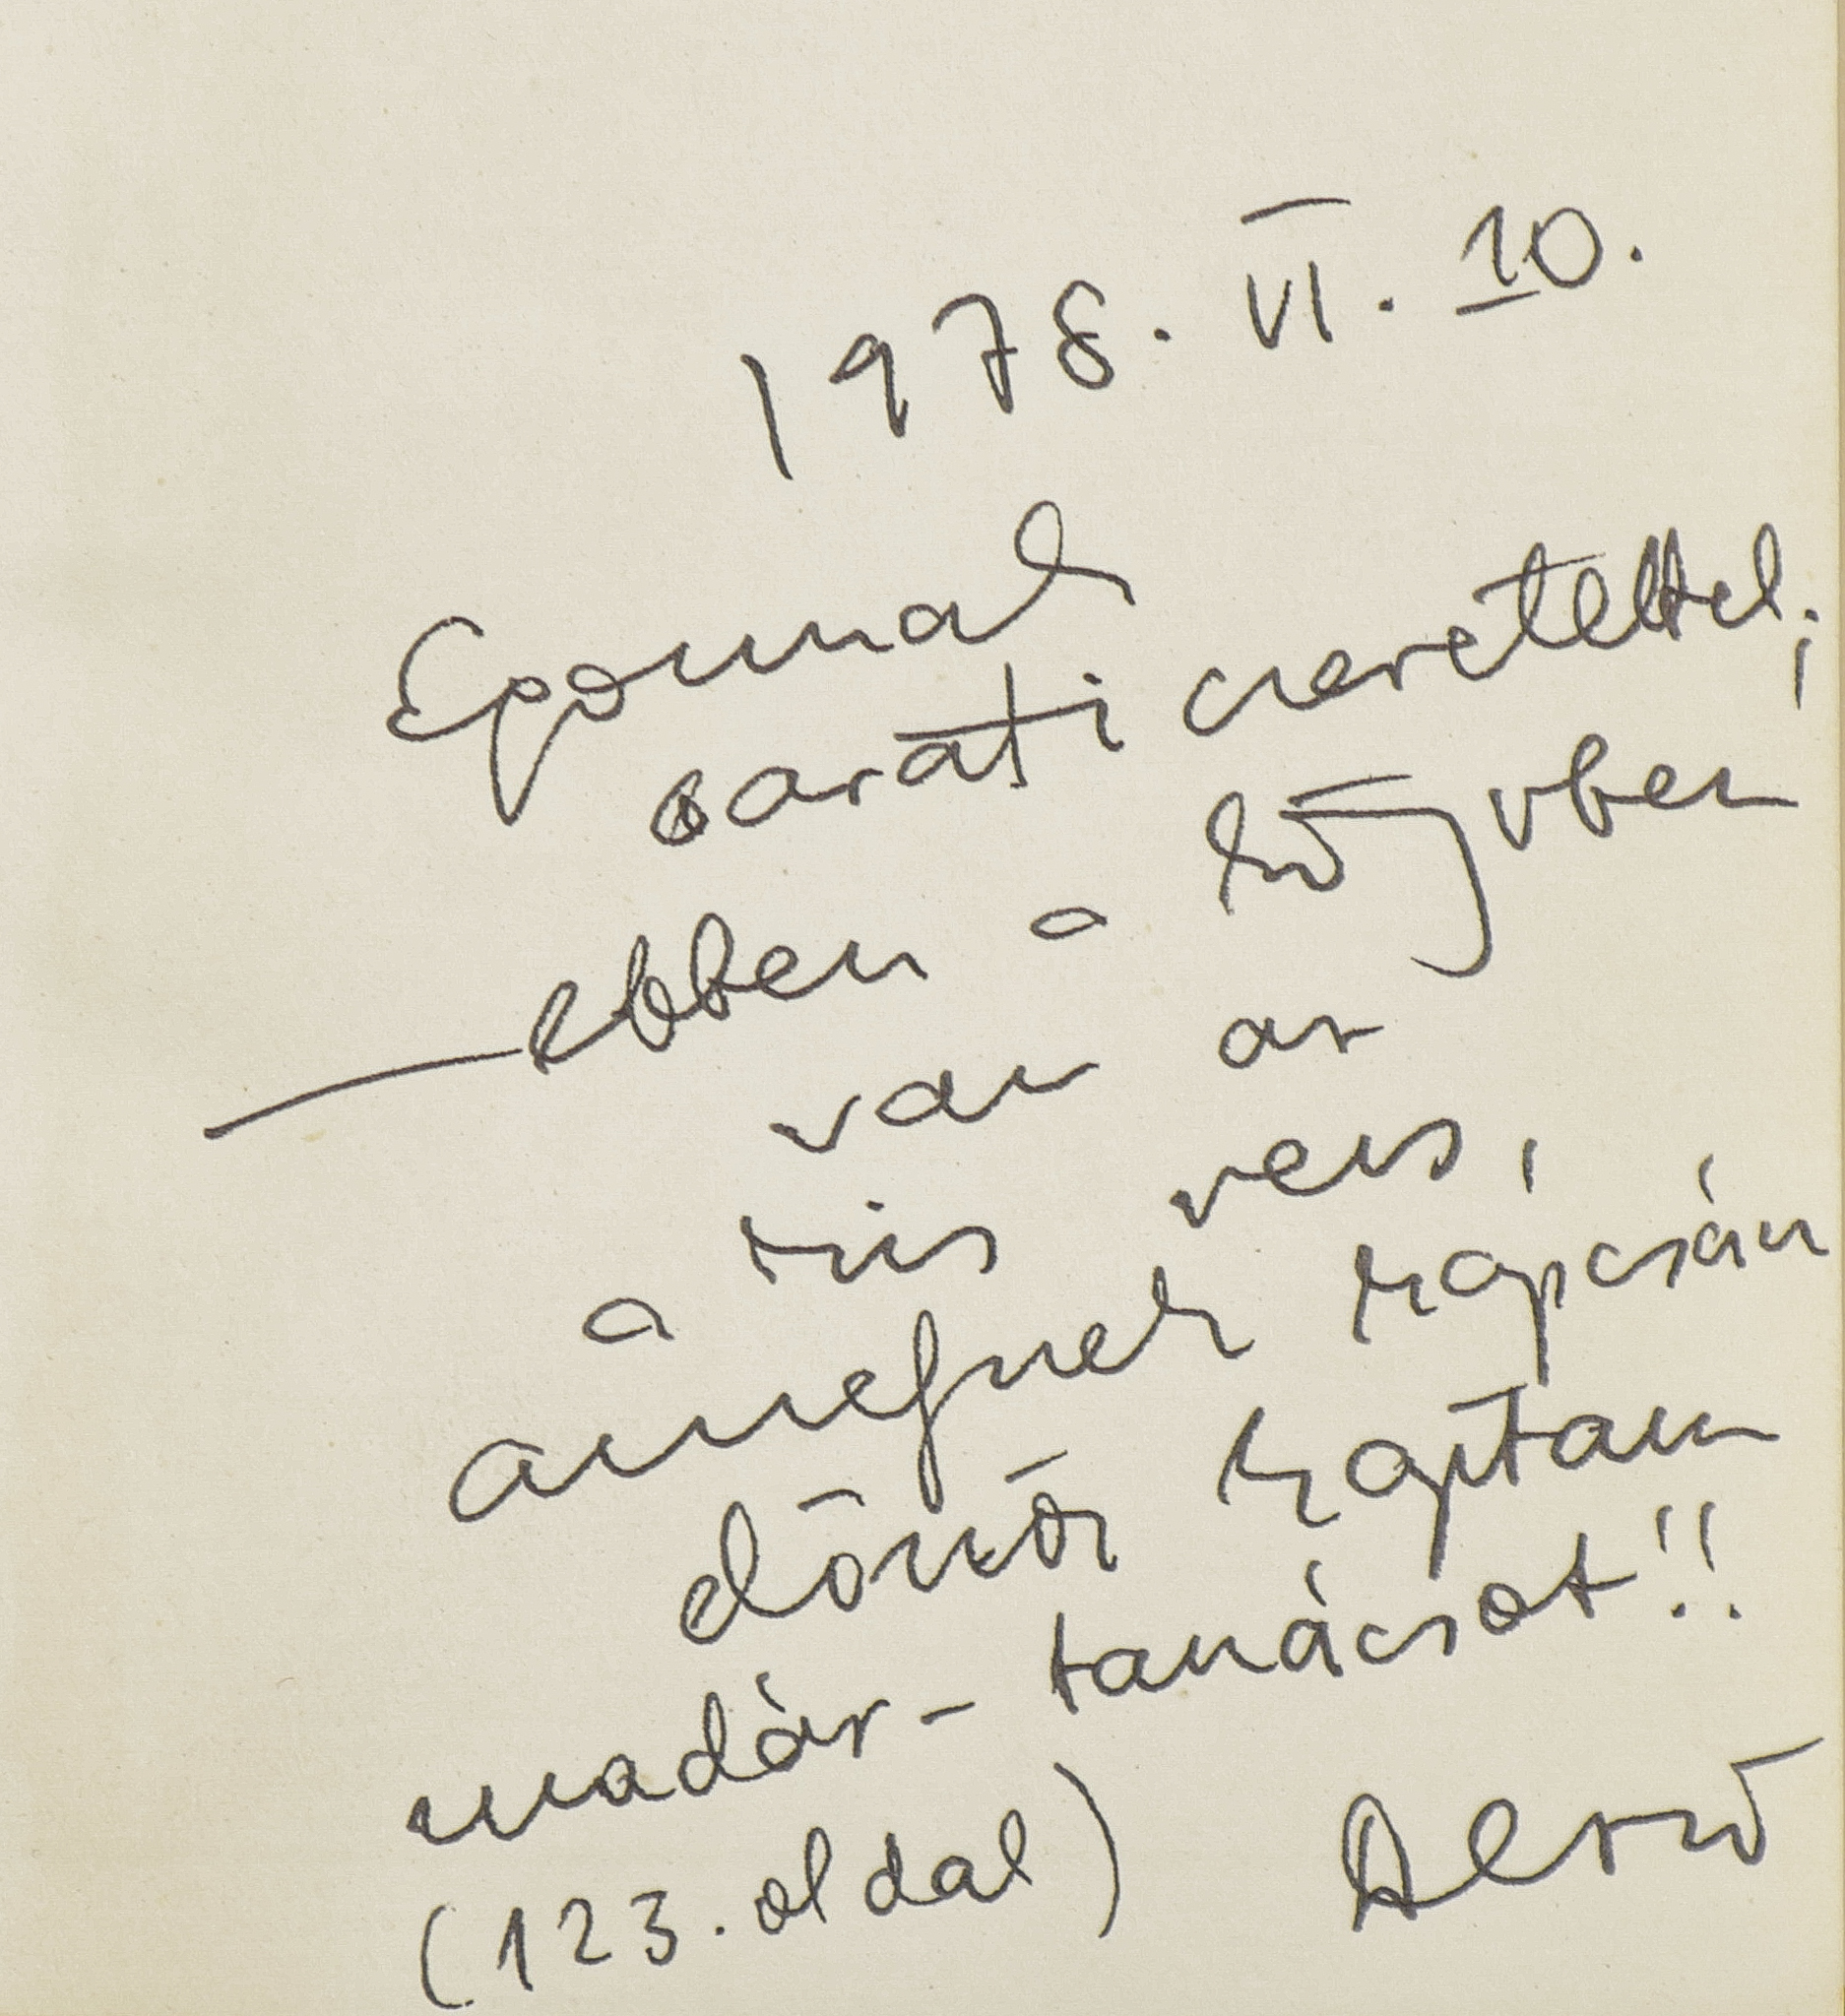 1978. VI. 10.
Egonnak
baráti szeretettel;
— ebben a könyvben
van az
a kis vers,
amelynek kapcsán
döntő kaptam
madár-tanácsot!!
(123. oldal) Dezső